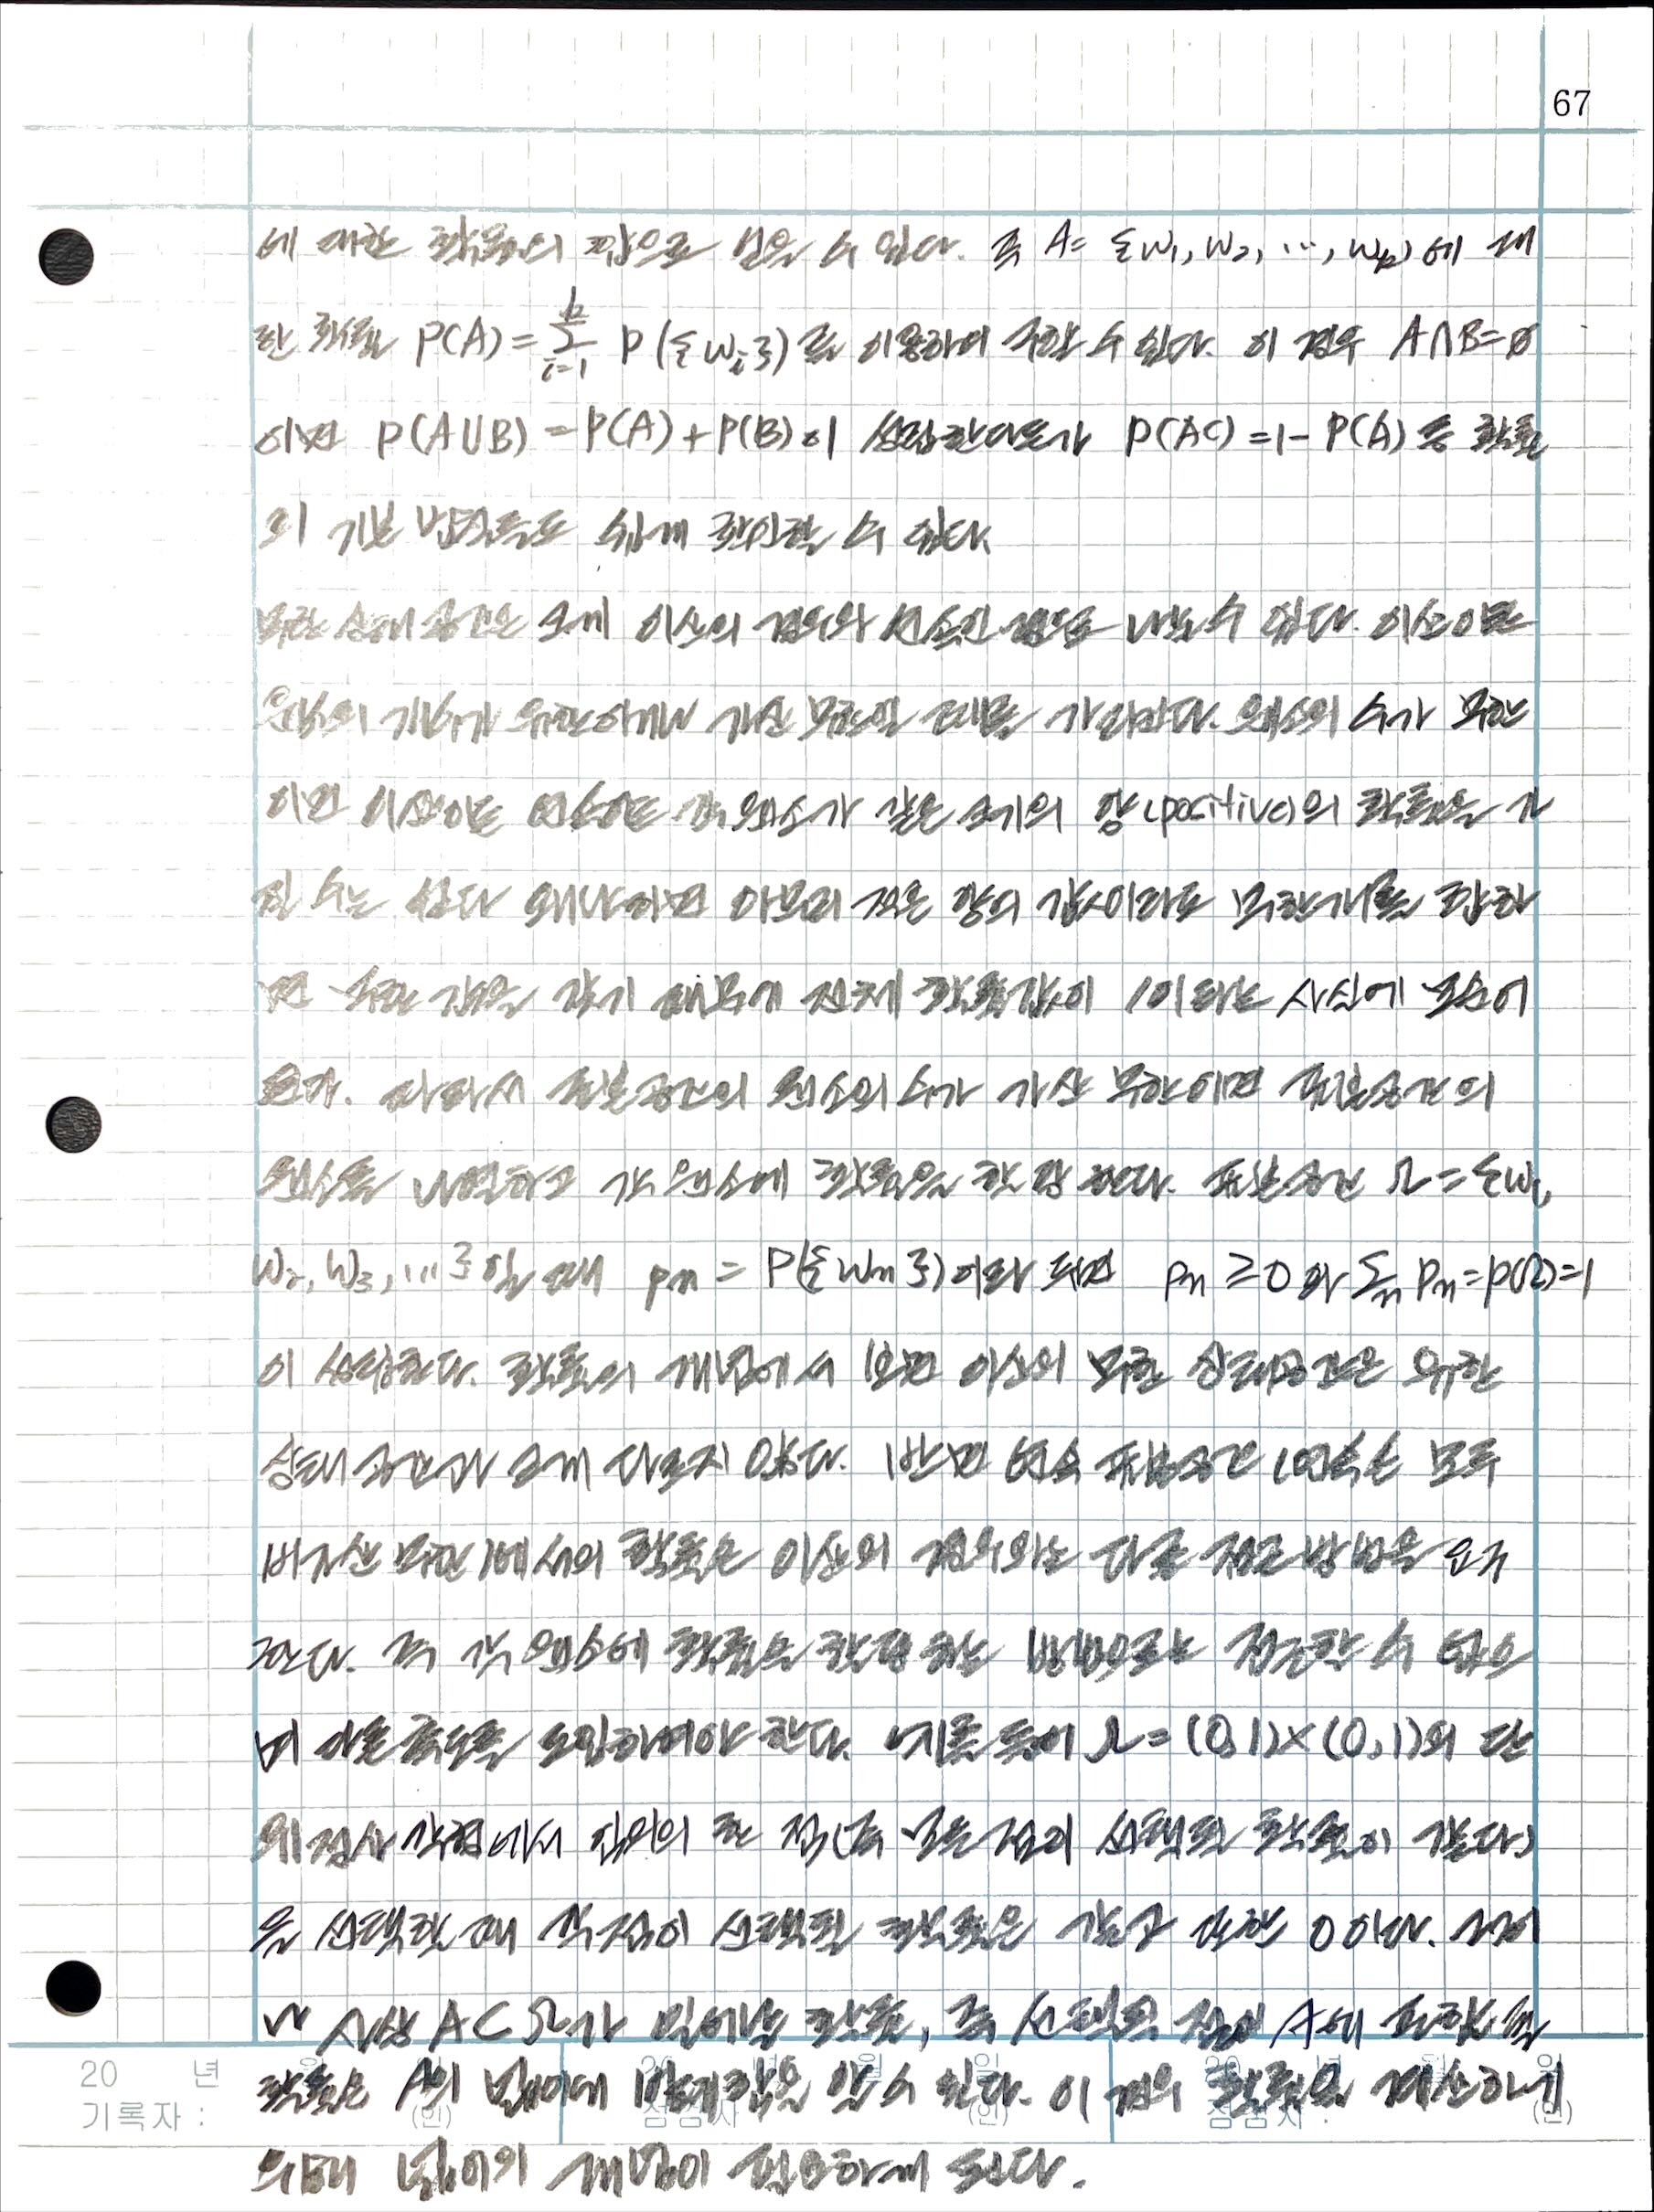 67
에 대한 확률의 합으로 얻을 수 있다. 즉 A= {w₁, w₂, ..., wₖ}에 대
한 확률 P(A)=Σᵢ₌₁ᵏ P({wᵢ})를 이용하여 구할 수 있다. 이 경우 A∩B=∅
이면 P(A∪B)=P(A)+P(B)이 성립한다든가 P(Aᶜ)=1-P(A) 등 확률
의 기본 법칙들도 쉽게 확인할 수 있다.
무한 상태 공간은 크게 이산의 경우와 연속인 경우로 나눌 수 있다. 이산이란
원소의 개수가 유한하거나 가산 무한일 때를 가리킨다. 원소의 수가 무한
이면 이산이든 연속이든 각 원소가 같은 크기의 양(positive)의 확률을 가
질 수는 없다 왜냐하면 아무리 작은 양의 값이라도 무한개를 합하
면 무한 값을 갖기 때문에 전체 확률값이 1이라는 사실에 모순이
된다. 따라서 표본공간의 원소의 수가 가산 무한이면 표본공간의
원소를 나열하고 각 원소에 확률을 할당 한다. 표본공간 Ω={w₁,
w₂, w₃, ...}일 때 pₙ = P({wₙ})이라 두면 pₙ ≥0 와 Σₙ pₙ=P(Ω)=1
이 성립한다. 확률의 개념에서 보면 이산의 무한 상태공간은 유한
상태 공간과 크게 다르지 않다. 반면 연속 표본공간 (연속은 모두
비가산 무한)에서의 확률은 이산의 경우와는 다른 접근 방법을 요구
한다. 즉 각 원소에 확률을 할당 하는 방법으로는 접근할 수 없으
며 다른 측도를 도입하여야 한다. 예를 들어 Ω=(0,1)×(0,1)의 단
위 정사각형에서 임의의 한 점(즉 모든 점이 선택될 확률이 같다)
을 선택할 때 각 점이 선택될 확률은 같고 또한 0이다. 그러
나 사상 A⊂Ω가 일어날 확률, 즉 선택된 점이 A에 포함될
확률은 A의 넓이에 비례함을 알 수 있다. 이 경우 확률을 계산하기
위해 넓이의 개념이 필요하게 된다.
20 년
기록자 :